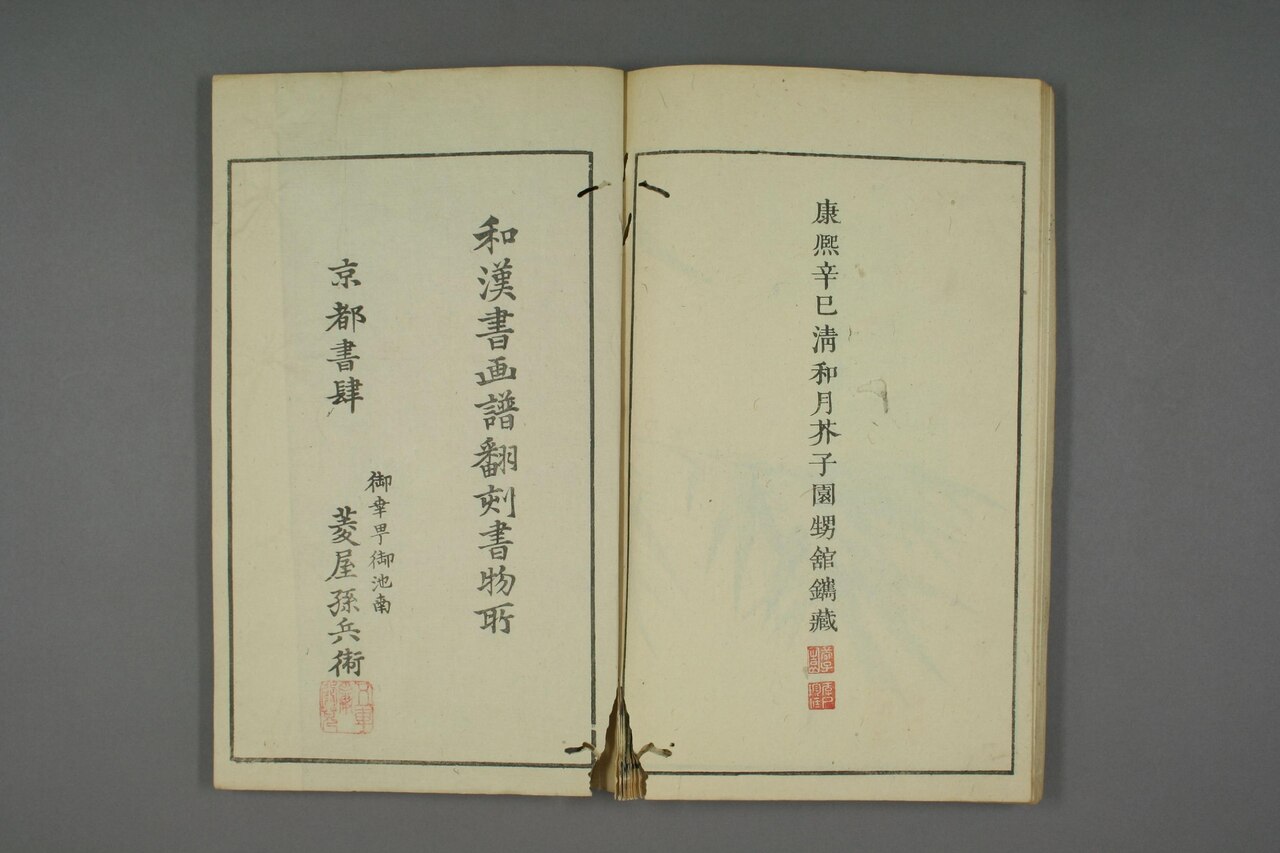 康熙辛巳清和月芥子園甥舘鐫藏
和漢書画譜翻刻書物所
京都書肆
御幸町御池南
菱屋孫兵衛